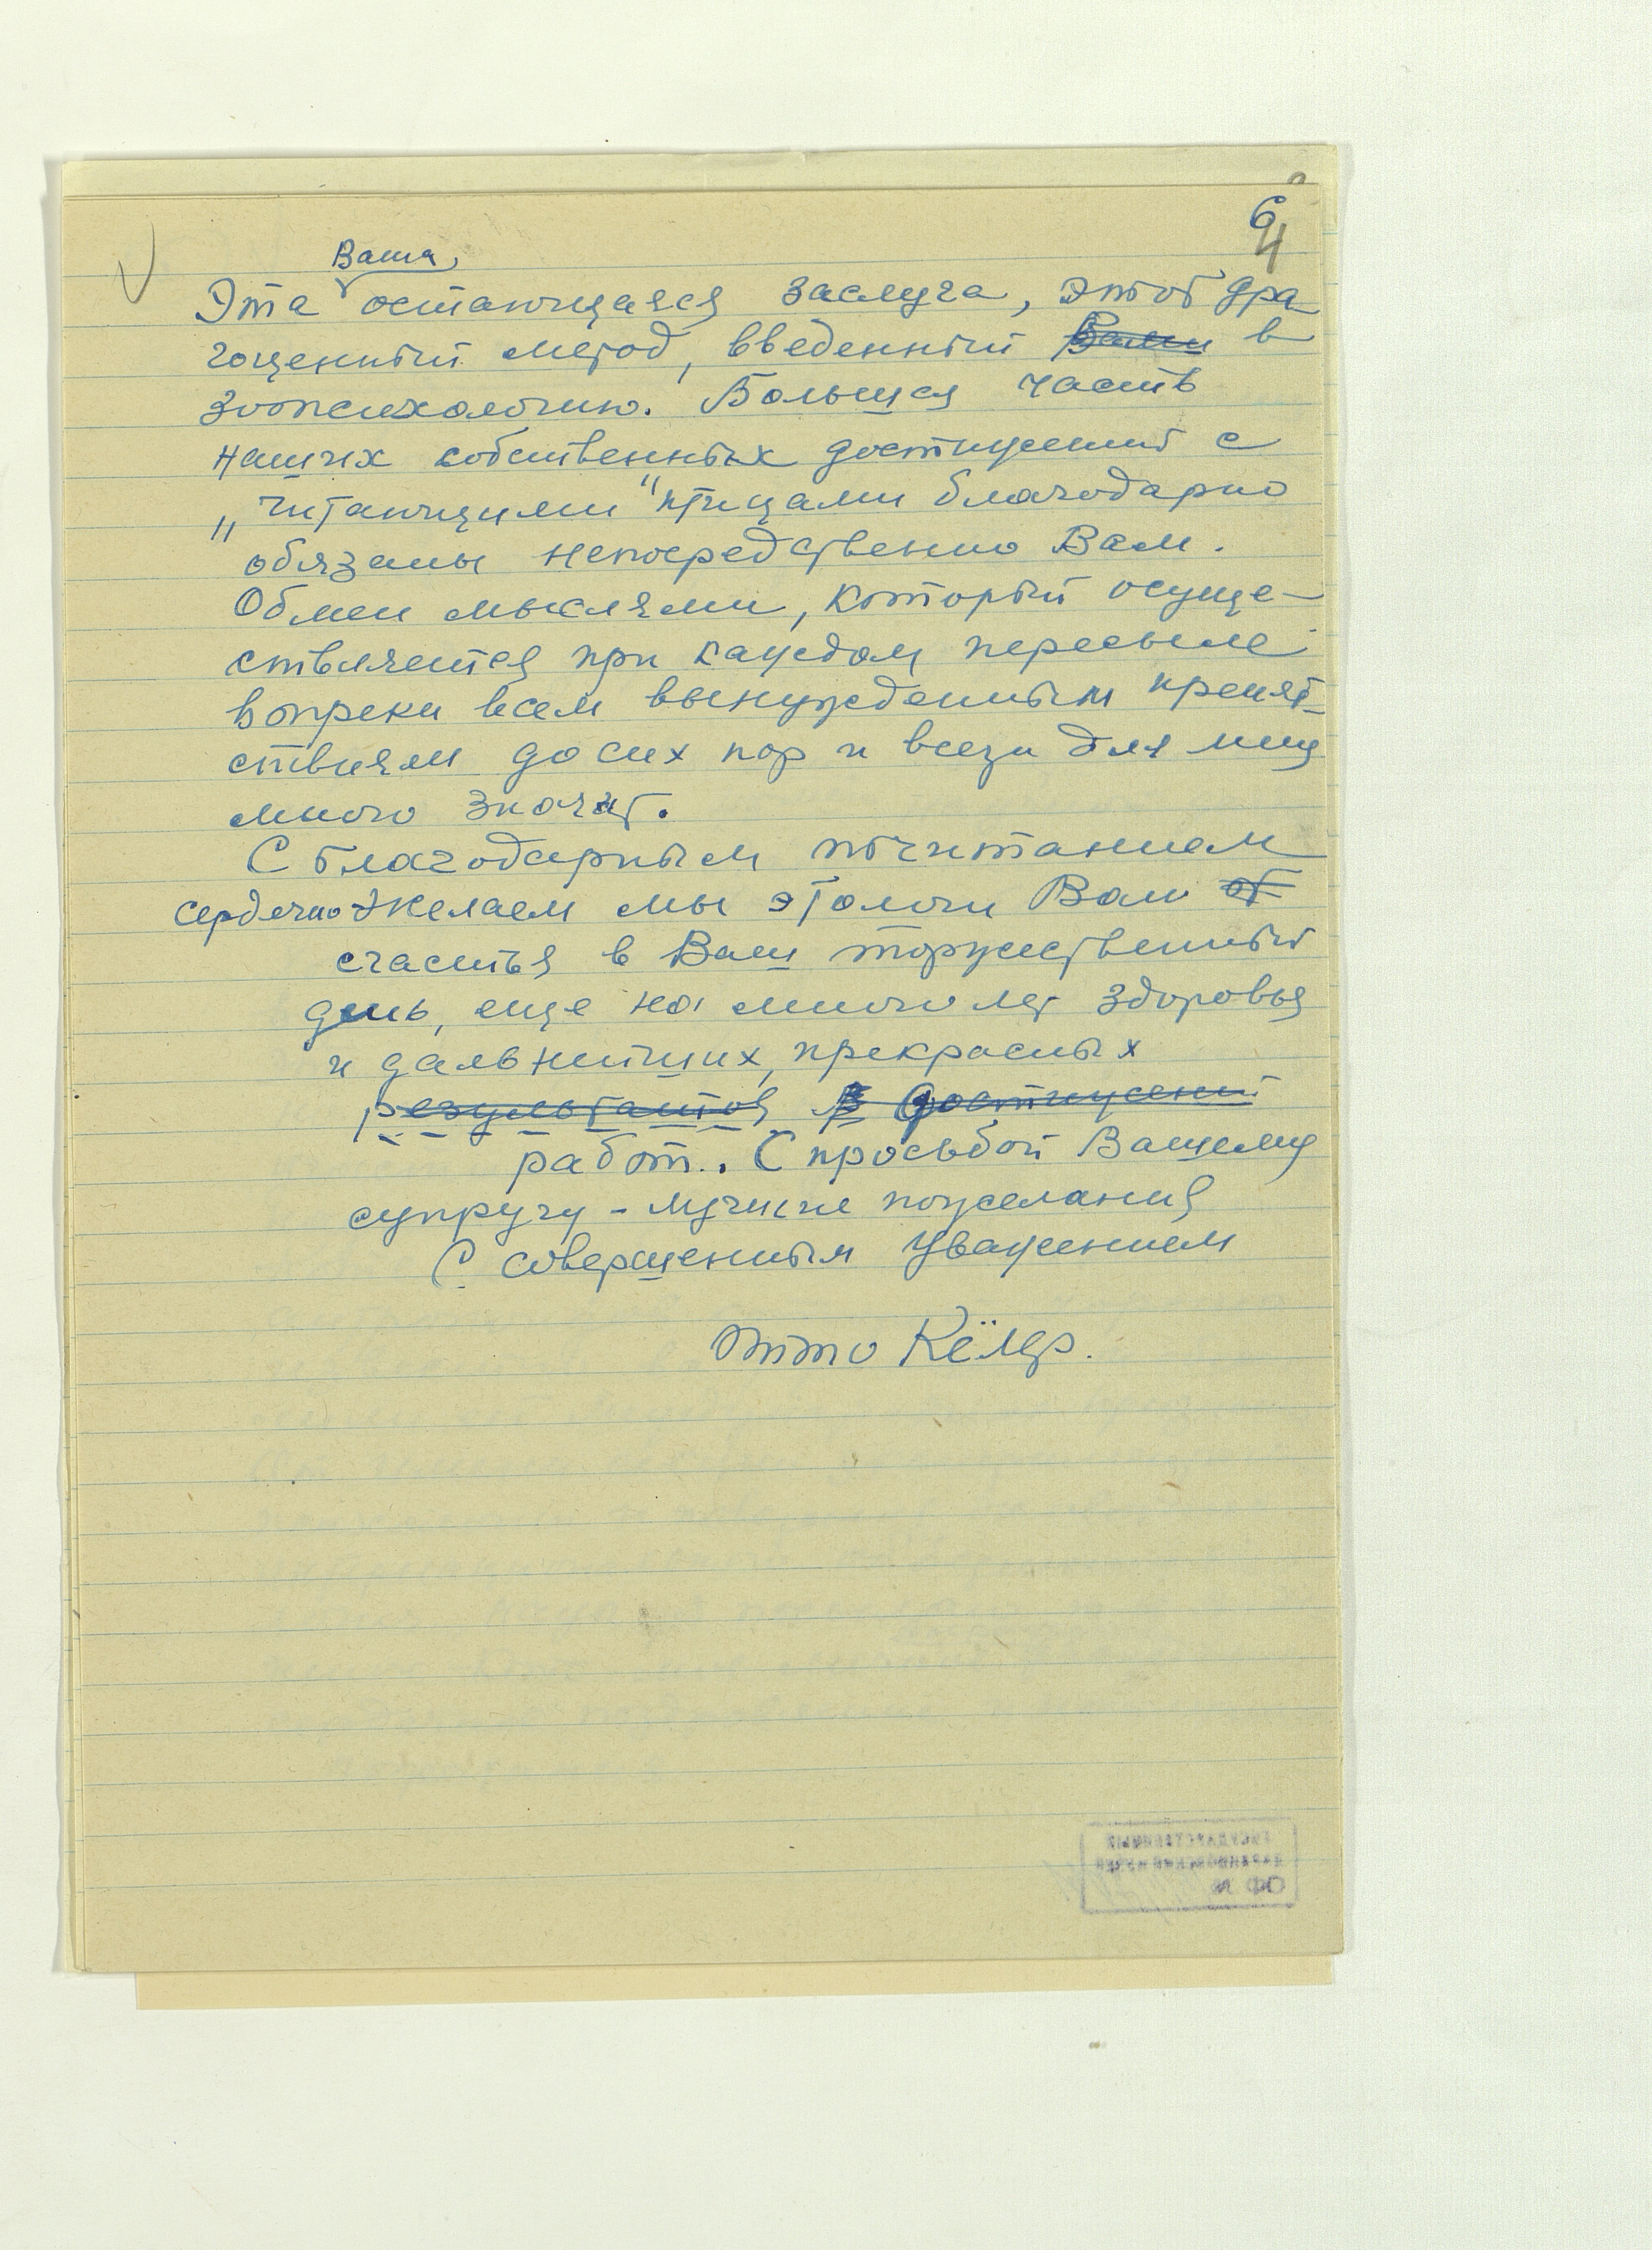 6
4
Ваша,
Эта остающаяся заслуга, этот дра-
гоценный метод, введенный Вами в
зоопсихологию. Большая часть
наших собственных достижений с
„читающими" птицами благодарно
обязаны непосредственно Вам.
Обмен мыслями, который осуще-
ствляется при каждом пересыле
вопреки всем вынужденным препят-
ствиям до сих пор и всегда для меня
много значит.
С благодарным почитанием
сердечно желаем мы этологи Вам
счастья в Ваш торжественный
день, еще на много лет здоровья
и дальнейших, прекрасных
результатов в достижений
работ.. С просьбой Вашему
супругу - лучшие пожелания
С совершенным уважением
Отто Кёлер.
ГОСУДАРСТВЕННЫЙ
ДАРВИНОВСКИЙ МУЗЕЙ
ОФ №